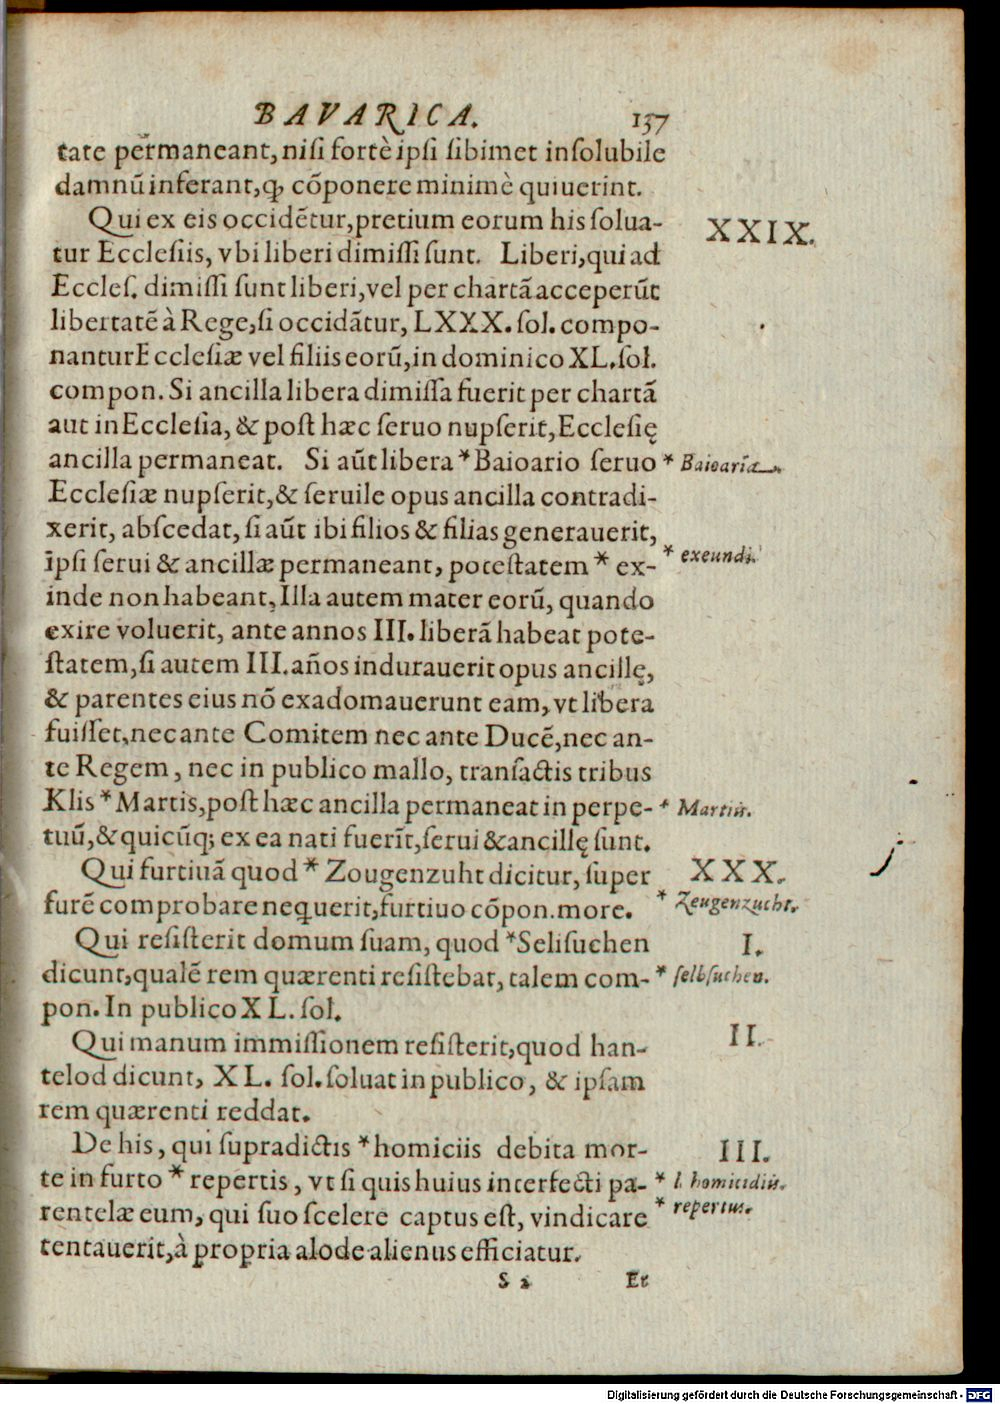 BAVARICA. 137
tate permaneant, nisi fortè ipsi sibimet insolubile
damnũ inferant, ꝙ cõponere minimè quiuerint.
Qui ex eis occidẽtur, pretium eorum his solua-
XXIX.
tur Ecclesiis, vbi liberi dimissi sunt. Liberi, qui ad
Eccles. dimissi sunt liberi, vel per chartã acceperũt
libertatẽ à Rege, si occidãtur, LXXX. sol. compo-
nantur Ecclesiæ vel filiis eorũ, in dominico XL. sol.
compon. Si ancilla libera dimissa fuerit per chartã
aut in Ecclesia, & post hæc seruo nupserit, Ecclesię
ancilla permaneat. Si aũt libera * Baioario seruo
* Baioaria
Ecclesiæ nupserit, & seruile opus ancilla contradi-
xerit, abscedat, si aũt ibi filios & filias generauerit,
ipsi serui & ancillæ permaneant, potestatem * ex-
* exeundi.
inde non habeant, Illa autem mater eorũ, quando
exire voluerit, ante annos III. liberã habeat pote-
statem, si autem III. años indurauerit opus ancillę,
& parentes eius nõ exadomauerunt eam, vt libera
fuisset, nec ante Comitem nec ante Ducẽ, nec an-
te Regem, nec in publico mallo, transactis tribus
Klis * Martis, post hæc ancilla permaneat in perpe-
* Martiis.
tuũ, & quicũq; ex ea nati fuerĩt, serui & ancillę sunt.
Qui furtiuã quod * Zougenzuht dicitur, super
XXX.
furẽ comprobare nequerit, furtiuo cõpon. more.
* Zeugenzucht.
Qui resisterit domum suam, quod * Selisuchen
I.
dicunt, qualẽ rem quærenti resistebat, talem com-
* selbsuchen.
pon. In publico XL. sol.
Qui manum immissionem resisterit, quod han-
II.
telod dicunt, XL. sol. soluat in publico, & ipsam
rem quærenti reddat.
De his, qui supradictis * homiciis debita mor-
III.
te in furto * repertis, vt si quis huius interfecti pa-
* l. homicidiis.
rentelæ eum, qui suo scelere captus est, vindicare
* repertus.
tentauerit, à propria alode alienus efficiatur.
S 2 Et
Digitalisierung gefördert durch die Deutsche Forschungsgemeinschaft - DFG